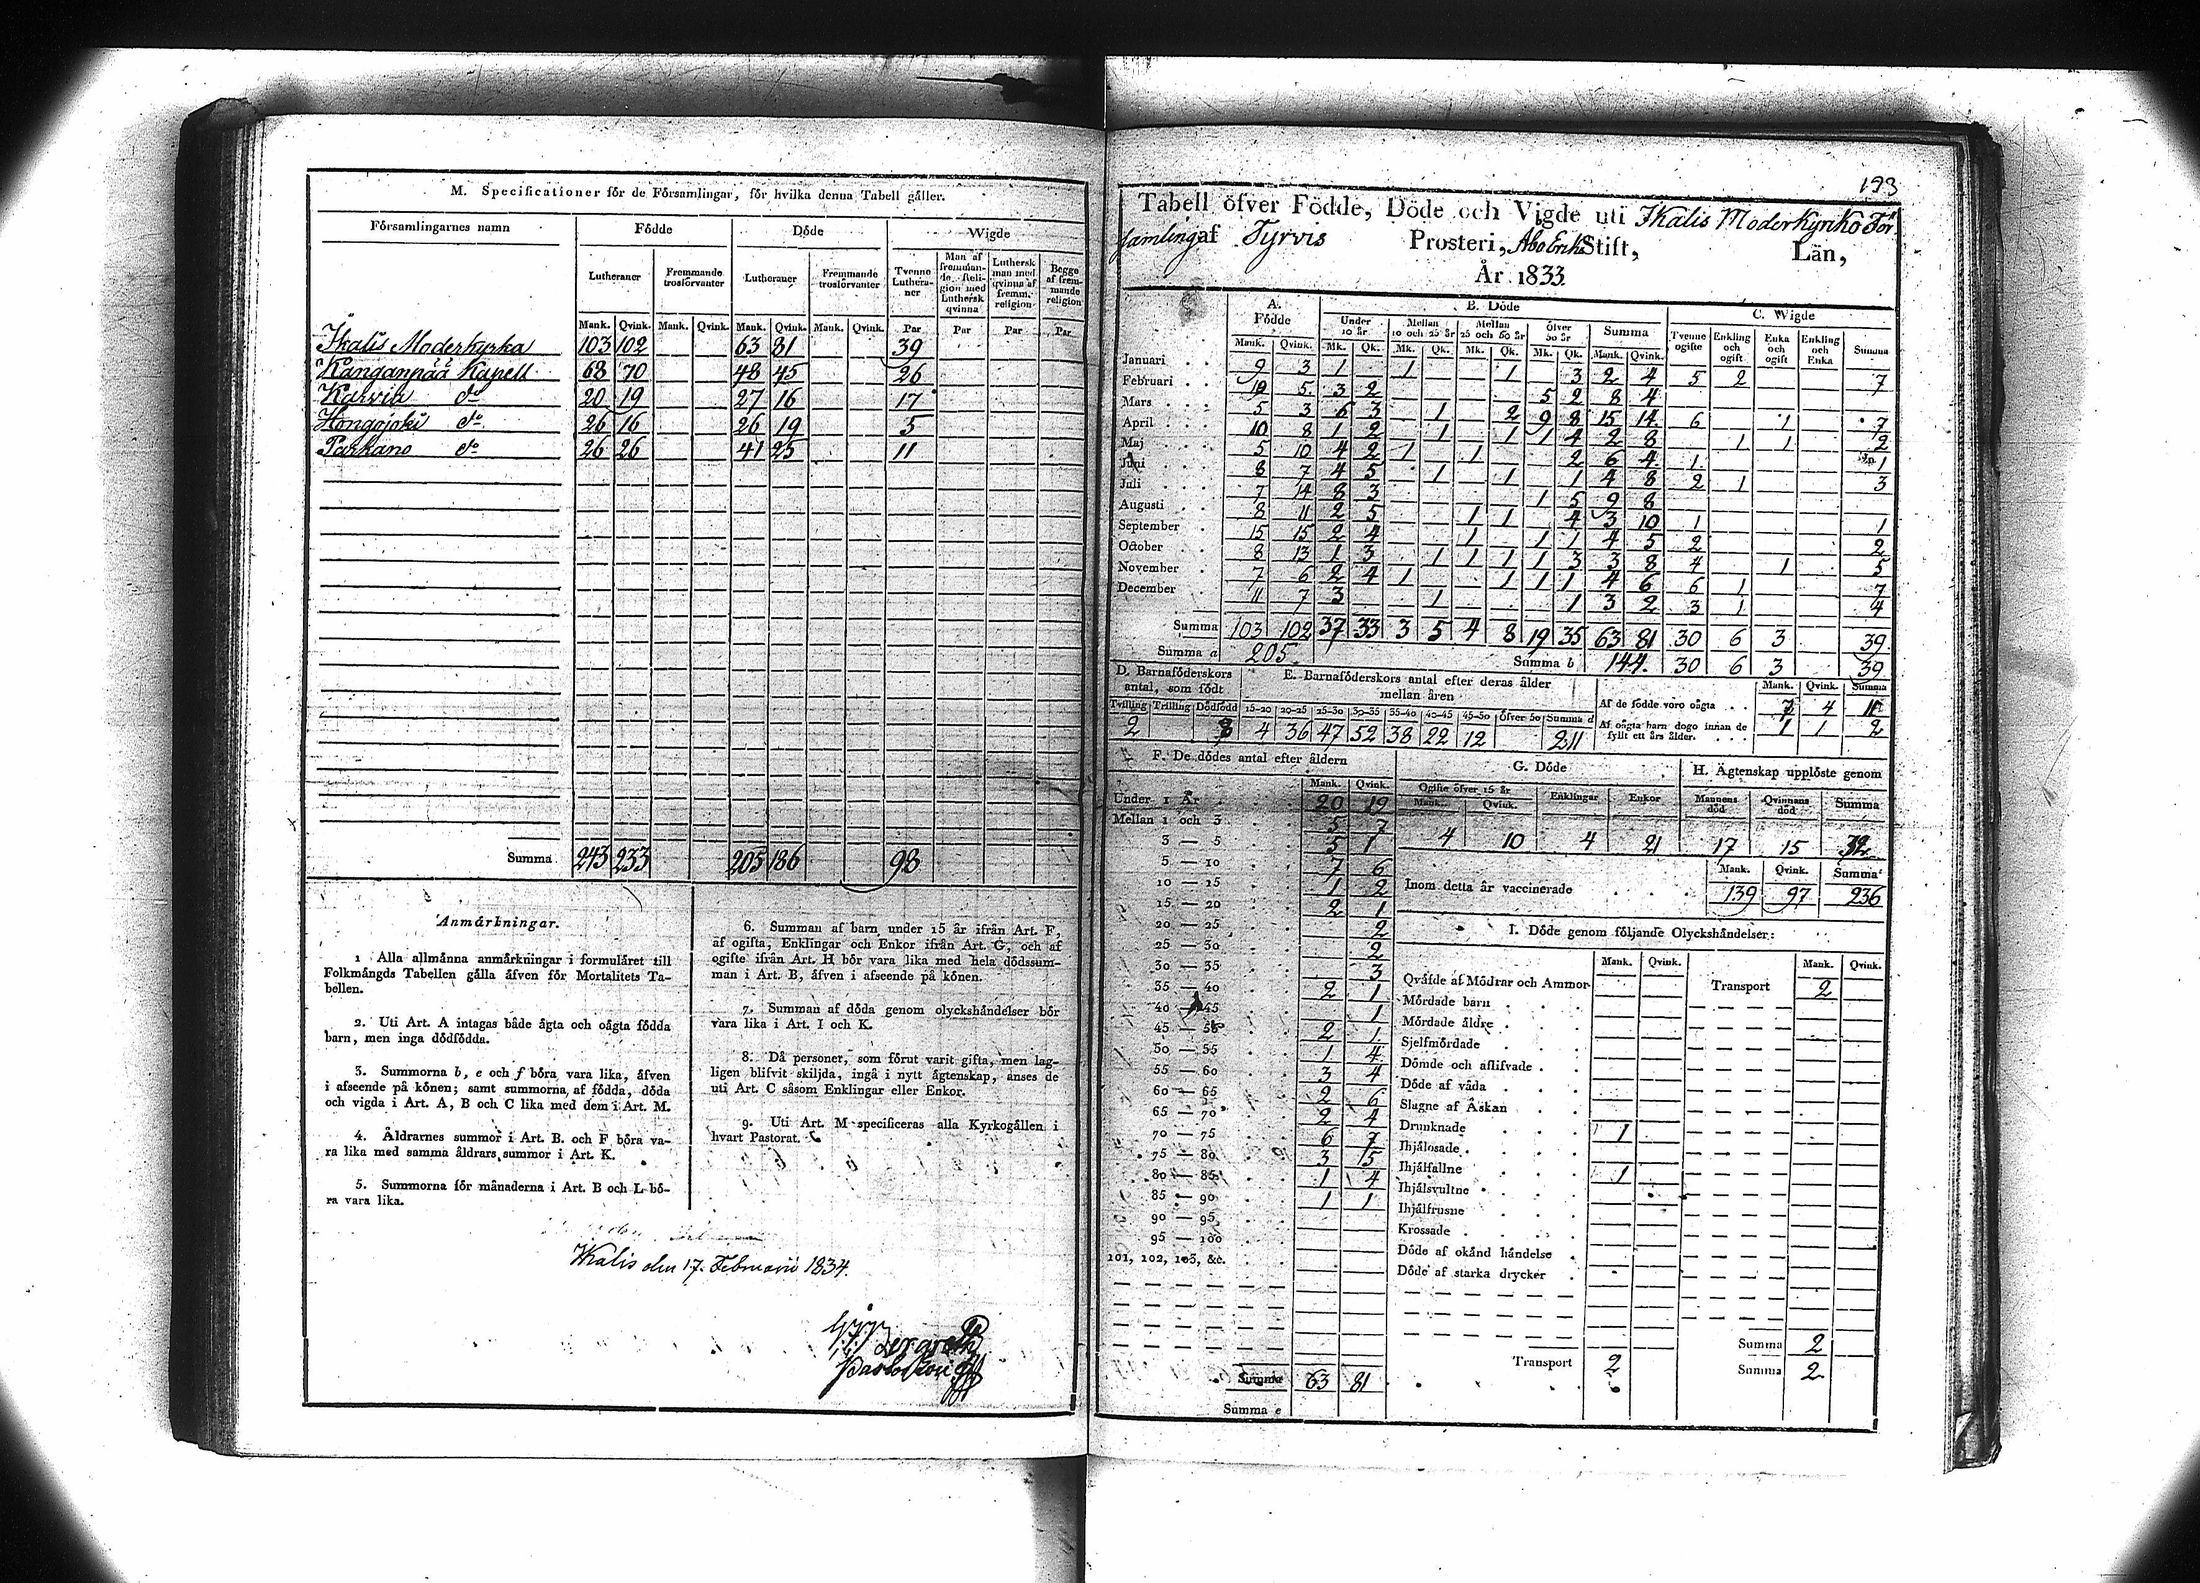 M. Specificationer för de Församlingar, för hvilka denna Tabell gäller.
Församlingarnes namn Födde Döde Wigde
Lutheraner Fremmande trosförvanter Lutheraner Fremmande trosförvanter Tvenne Lutheraner Man af fremmande Religion med Luthersk qvinna Luthersk man med qvinna af fremm. religion Begge af fremmande religion
Mank. Qvink. Mank. Qvink. Mank. Qvink. Mank. Qvink. Par Par Par Par
Ikalis Moderkyrka 103 102 63 81 39
Kånganpää Kapell 68 70 48 45 26
Karvia do 20 19 27 16 17
Hongojoki do 26 16 26 19 5
Parkano do 26 26 41 25 11
Summa 243 233 205 186 98
Anmärkningar.
1 Alla allmänna anmärkningar i formuläret till
Folkmängds Tabellen gälla äfven för Mortalitets Ta-
bellen.
2. Uti Art. A intagas både ägta och oägta födda
barn, men inga dödfödda.
3. Summorna b, e och f böra vara lika, äfven
i afseende på könen; samt summorna af födda, döda
och vigda i Art. A, B och C lika med dem i Art. M.
4. Åldrarnes summor i Art. B. och F böra va-
ra lika med samma åldrars summor i Art. K.
5. Summorna för månaderna i Art. B och L bö-
ra vara lika.
6. Summan af barn under 15 år ifrån Art. F,
af ogifta, Enklingar och Enkor ifrån Art. G, och af
ogifte ifrån Art. H bör vara lika med hela dödssum-
man i Art. B, äfven i afseende på könen.
7. Summan af döda genom olyckshändelser bör
vara lika i Art. I och K.
8. Då personer, som förut varit gifta, men lag-
ligen blifvit skiljda, ingå i nytt ägtenskap, anses de
uti Art. C såsom Enklingar eller Enkor.
9. Uti Art. M specificeras alla Kyrkogällen i
hvart Pastorat.
Ikalis den 17. Februarii 1834.
193
Tabell öfver Födde, Döde och Vigde uti Ikalis Moderkyriko För
samling af Tyrvis Prosteri, Åbo Erke Stift, Län,
År 1833
A. Födde B. Döde C. Wigde
Under 10 år Mellan 10 och 25 år Mellan 25 och 50 år Öfver 50 år Summa Tvenne ogifte Enkling och ogift Enka och ogift Enkling och Enka Summa
Mank. Qvink. Mk. Qk. Mk. Qk. Mk. Qk. Mk. Qk. Mank. Qvink.
Januari 9 3 1 1 1 3 2 4 5 2 7
Februari 10 5 3 2 5 2 8 4
Mars 5 3 6 3 1 2 9 8 15 14 6 1 7
April 10 8 1 2 1 1 1 4 2 8 1 1 2
Maj 5 10 4 2 1 1 2 6 4 1 1
Juni 8 7 4 5 1 1 1 4 8 2 1 3
Juli 7 14 8 3 1 5 9 8
Augusti 8 11 2 5 1 1 4 3 10 1 1
September 15 15 2 4 1 1 1 4 5 2 2
October 8 13 1 3 1 1 1 1 3 3 8 4 1 5
November 7 6 2 4 1 1 1 1 4 6 6 1 7
December 11 7 3 1 1 3 2 3 1 4
Summa 103 102 37 33 3 5 4 8 19 35 63 81 30 6 3 39
Summa a 205. Summa b 144. 30 6 3 39
D. Barnaföderskors antal, som födt E. Barnaföderskors antal efter deras ålder mellan åren
Tvilling Trilling Dödfödd 15–20 20–25 25–30 30–35 35–40 40–45 45–50 öfver 50 Summa d
2 8 4 36 47 52 38 22 12 211
Mank. Qvink. Summa
Af de födde voro oägta 7 4 11
Af oägta barn dogo innan de fyllt ett års ålder. 1 1 2
F. De dödes antal efter åldern
Mank. Qvink.
Under 1 År 20 19
Mellan 1 och 3 5 7
3 — 5 5 1
5 — 10 7 6
10 — 15 1 2
15 — 20 2 1
20 — 25 2
25 — 30 2
30 — 35 3
35 — 40 2 1
40 — 45 1
45 — 50 2 1
50 — 55 1 4
55 — 60 3 4
60 — 65 2 6
65 — 70 2 4
70 — 75 6 7
75 — 80 3 15
80 — 85 1 4
85 — 90 1 1
90 — 95
95 — 100
101, 102, 103, &c.
Summa 63 81
Summa e
G. Döde
Ogifte öfver 15 år Enklingar Enkor
Mank. Qvink.
4 10 4 21
H. Ägtenskap upplöste genom
Mannens död Qvinnans död Summa
17 15 32
Mank. Qvink. Summa
Inom detta år vaccinerade 139 97 236
I. Döde genom följande Olyckshändelser:
Mank. Qvink. Mank. Qvink.
Qväfde af Mödrar och Ammor Transport 2
Mördade barn
Mördade äldre
Sjelfmördade
Dömde och aflifvade
Döde af våda
Slagne af Åskan
Drunknade 1
Ihjälosade
Ihjälfallne 1
Ihjälsvultne
Ihjälfrusne
Krossade
Döde af okänd händelse
Döde af starka drycker
Summa 2
Transport 2 Summa 2